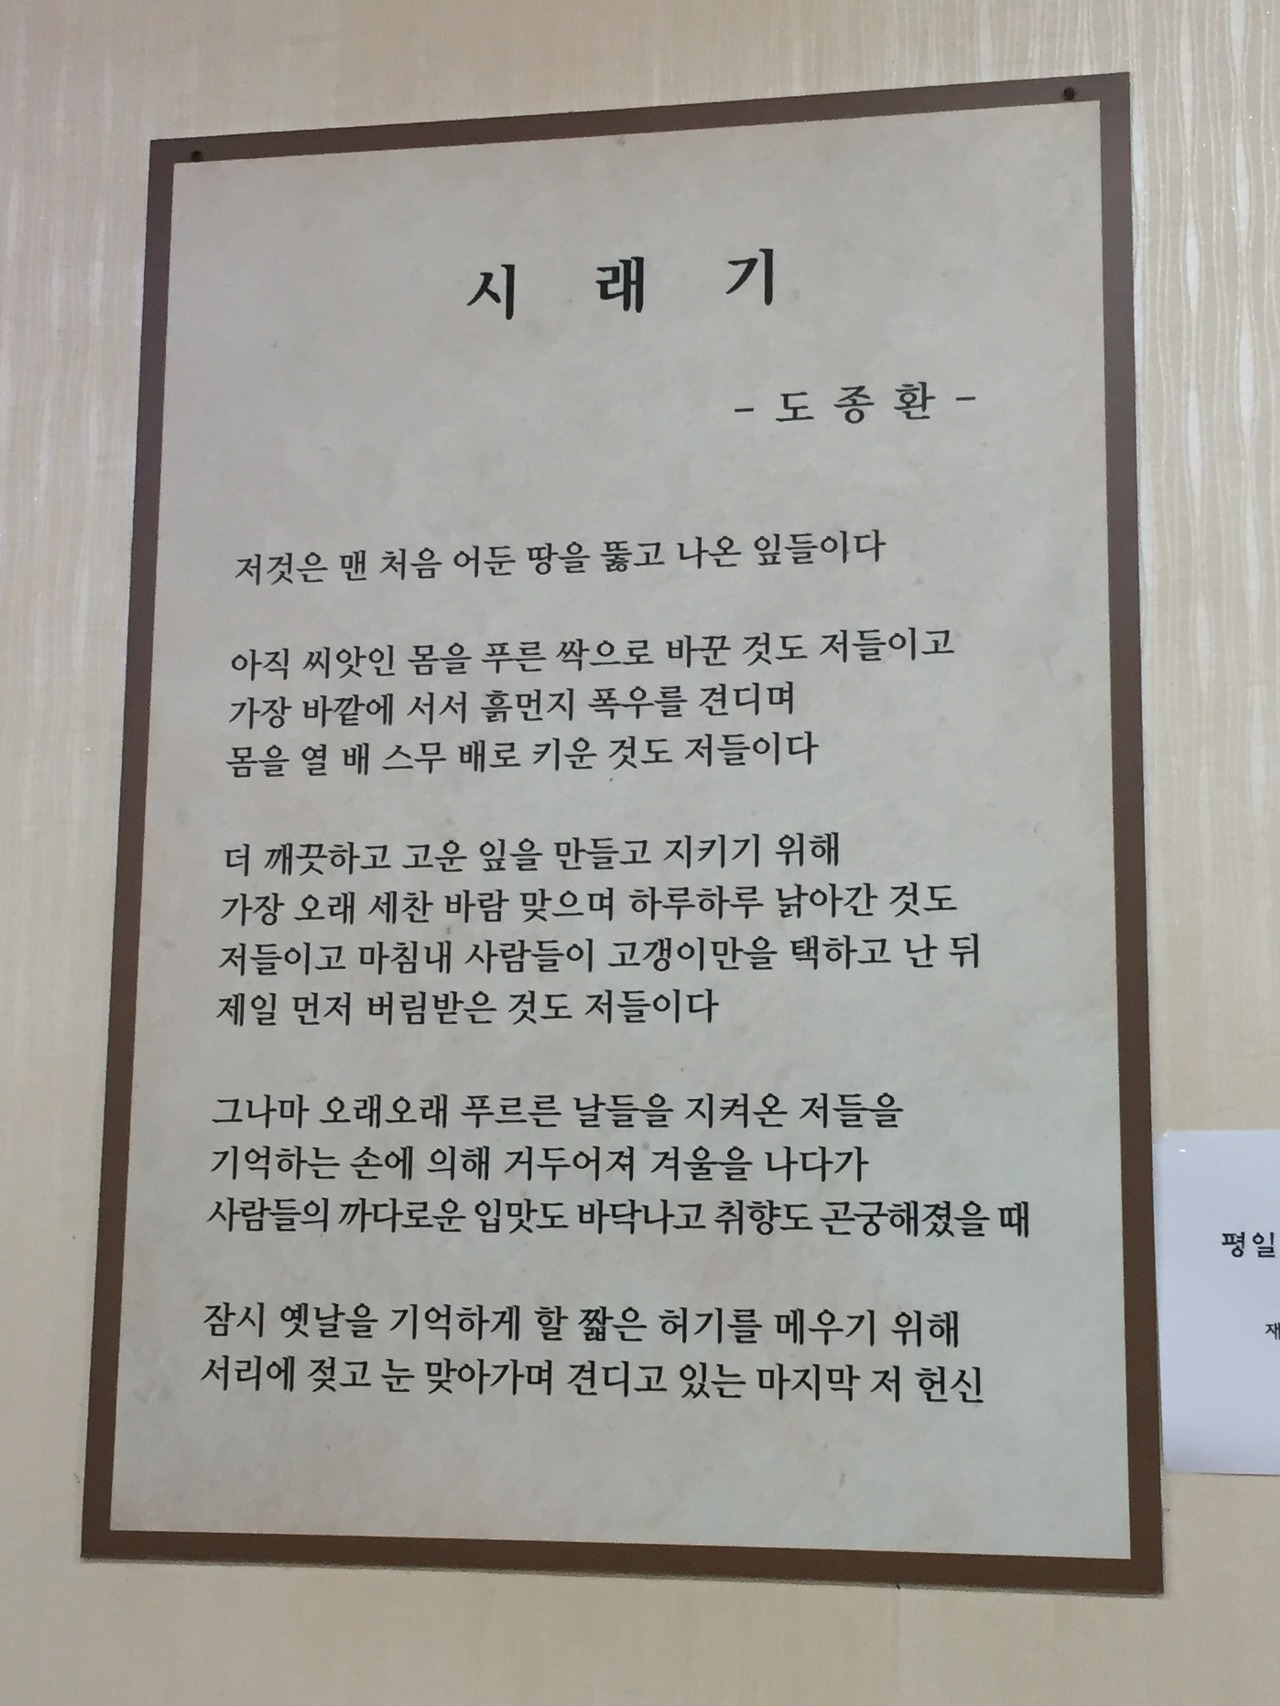 시 래 기
- 도 종 환 -
저것은 맨 처음 어둔 땅을 뚫고 나온 잎들이다
아직 씨앗인 몸을 푸른 싹으로 바꾼 것도 저들이고
가장 바깥에 서서 흙먼지 폭우를 견디며
몸을 열 배 스무 배로 키운 것도 저들이다
더 깨끗하고 고운 잎을 만들고 지키기 위해
가장 오래 세찬 바람 맞으며 하루하루 낡아간 것도
저들이고 마침내 사람들이 고갱이만을 택하고 난 뒤
제일 먼저 버림받은 것도 저들이다
그나마 오래오래 푸르른 날들을 지켜온 저들을
기억하는 손에 의해 거두어져 겨울을 나다가
사람들의 까다로운 입맛도 바닥나고 취향도 곤궁해졌을 때
잠시 옛날을 기억하게 할 짧은 허기를 메우기 위해
서리에 젖고 눈 맞아가며 견디고 있는 마지막 저 헌신
평일
재